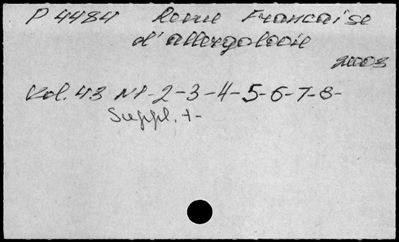 P 4484 Revue Francaise
d'allergologie
2003
Vol. 43 N1-2-3-4-5-6-7-8-
Suppl. 1-